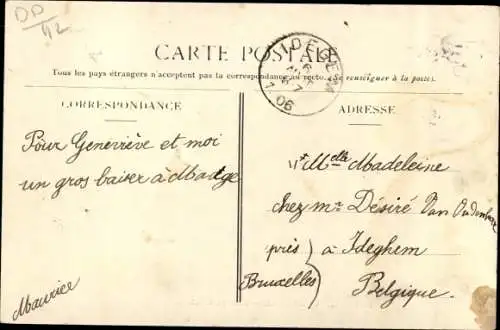 DD
42
CARTE POSTALE
Tous les pays étrangers n'acceptent pas la correspondance au recto. (Se renseigner à la poste).
IDEGHEM
1906
CORRESPONDANCE
ADRESSE
Pour Geneviève et moi
un gros baiser à Madge
Maurice
Melle Madeleine
chez mr Désiré Van
près) à Ideghem
Bruxelles) Belgique.